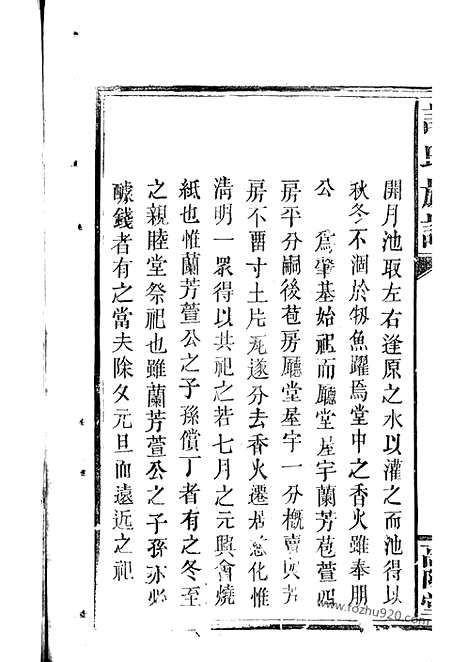 開月池取左右逢原之水以灌之而池得以
秋冬不涸於牣魚躍焉堂中之香火雖奉朋
公 為肇基始祖而廳堂屋宇蘭芳苞萱四
房平分嗣後苞房廳堂屋宇一分概賣與芳
房不畱寸土片瓦遂分去香火遷居慈化惟
清明一眾得以共祀之若七月之元興會燒
紙也惟蘭芳萱公之子孫償丁者有之冬至
之親睦堂祭祀也雖蘭芳萱公之子孫亦必
醵錢者有之當夫除夕元旦而遠近之祀
高陽堂
www.fozhu920.com